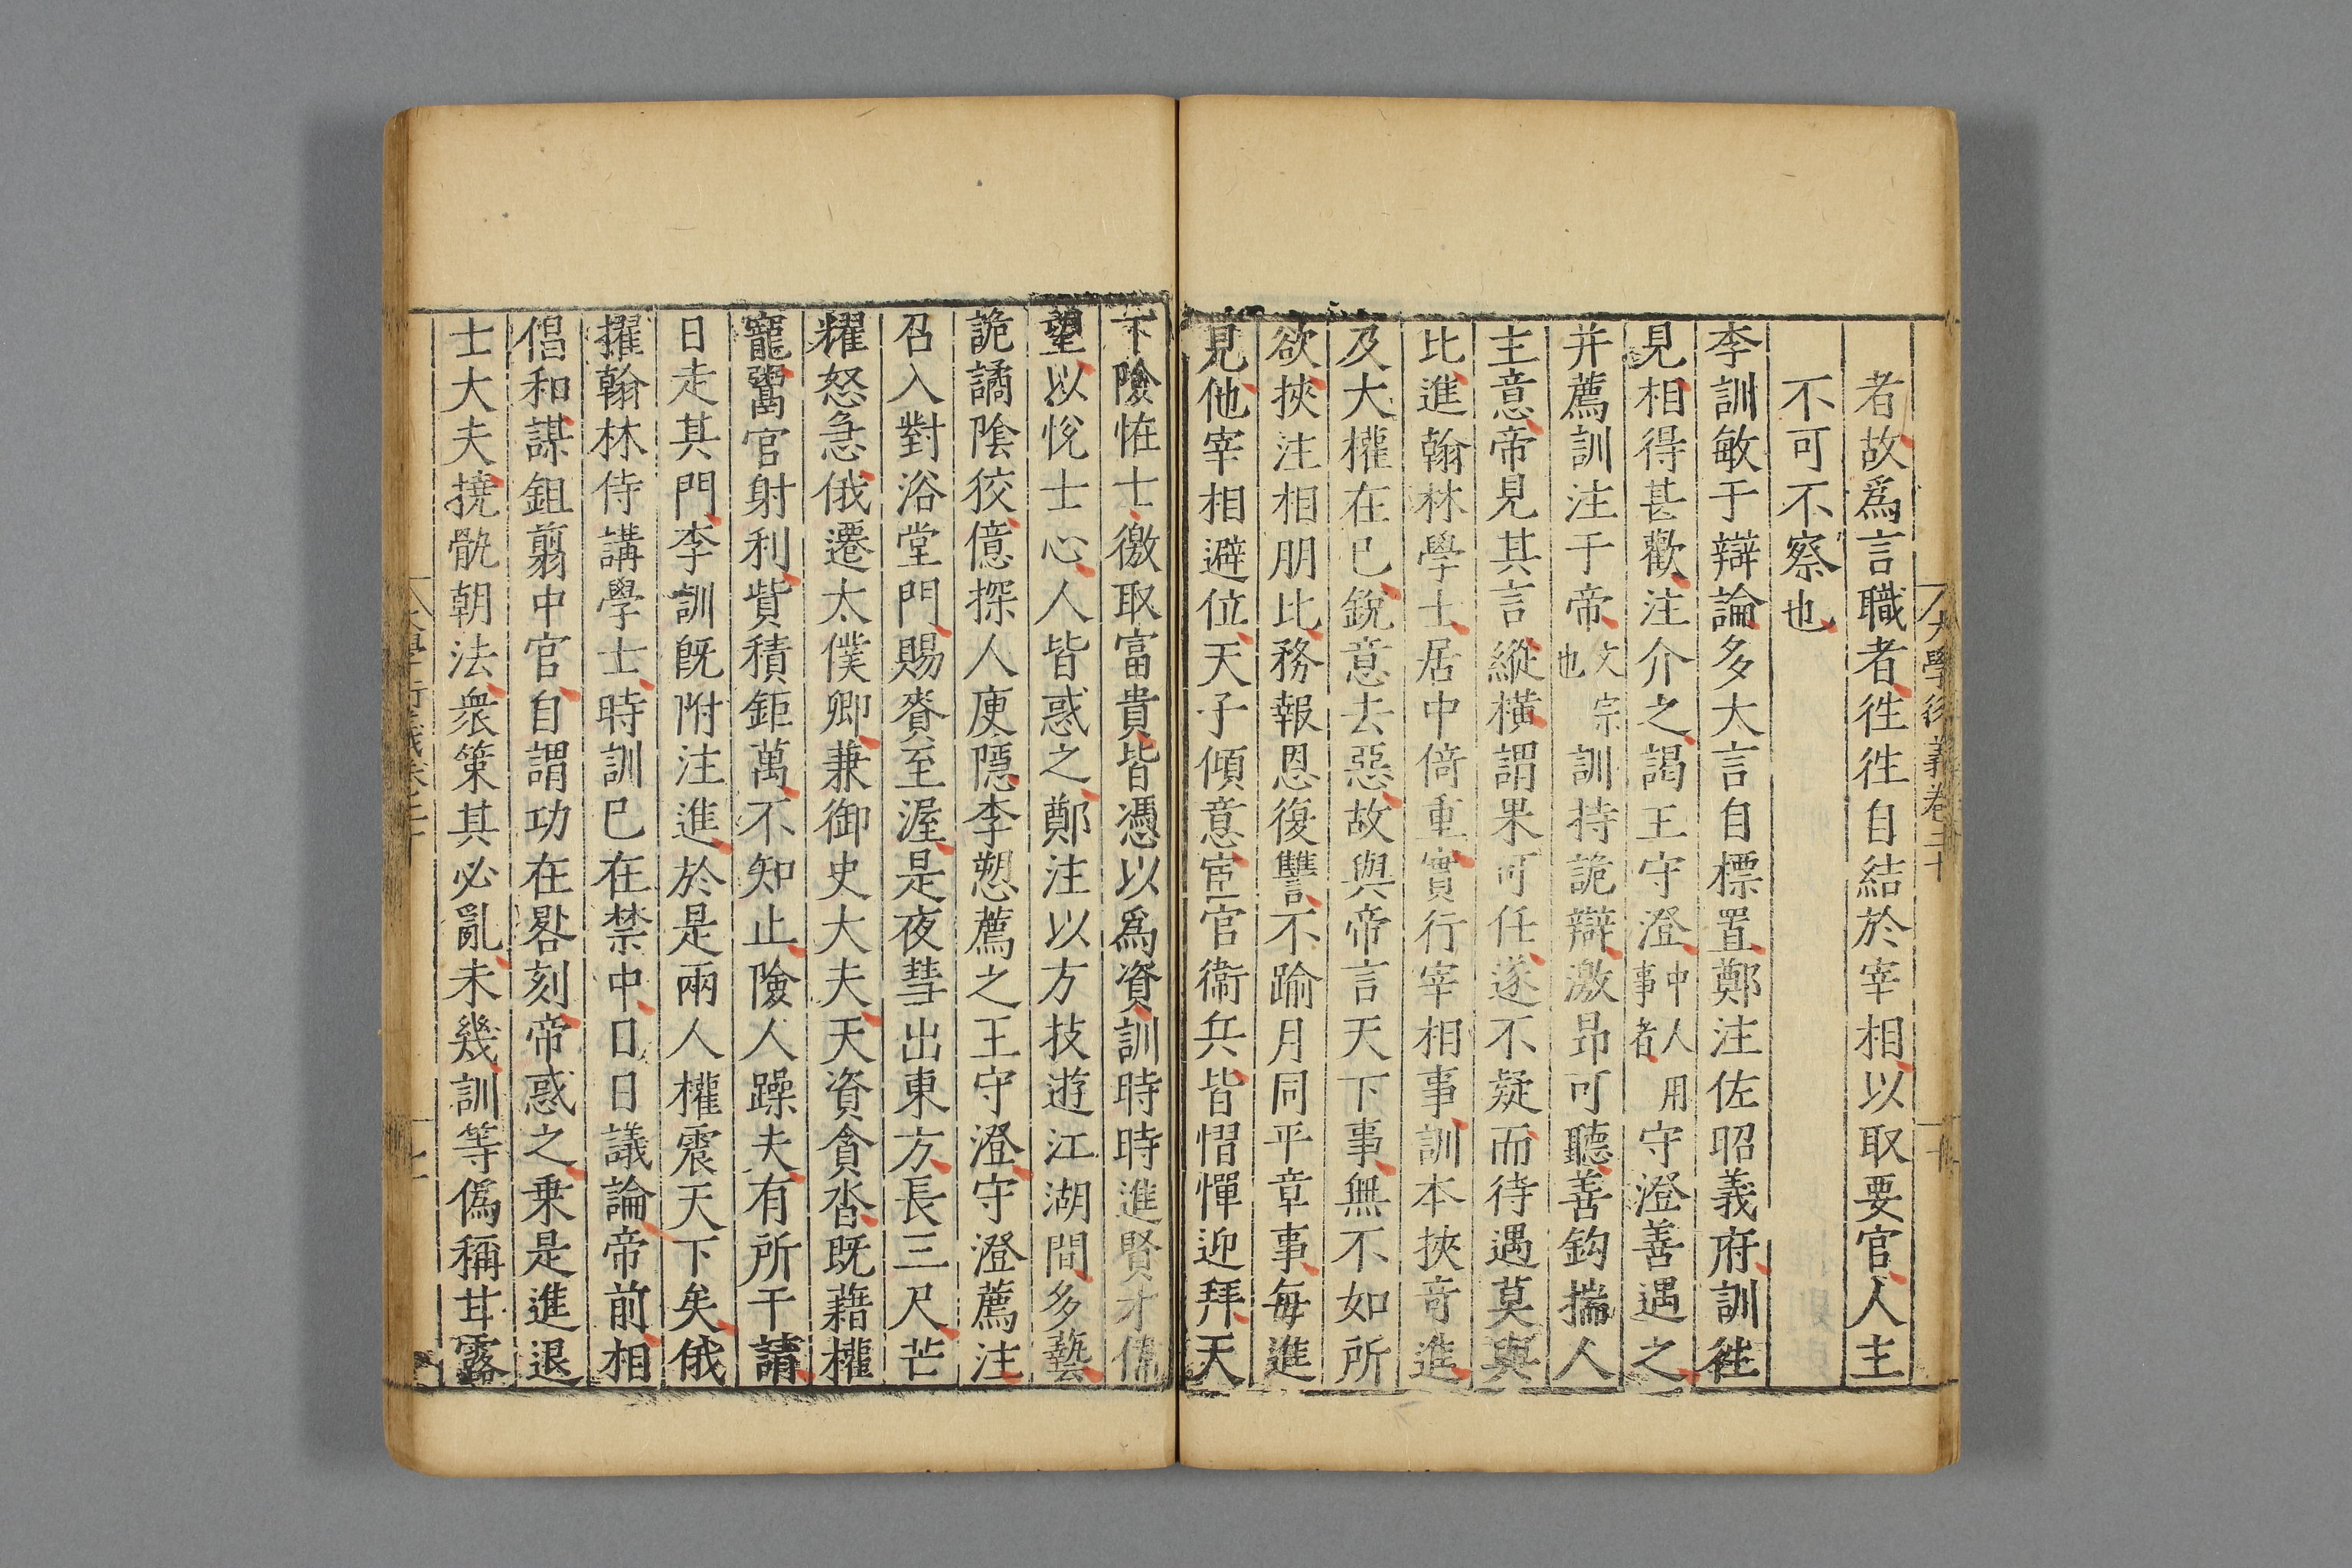 大學衍義卷二十
者故爲言職者徃徃自結於宰相以取要官人主
不可不察也
李訓敏于辯論多大言自標置鄭注佐昭義府訓徃
見相得甚歡注介之謁王守澄中人用事者守澄善遇之
并薦訓注于帝文宗也訓持詭辯激昂可聽善鈎揣人
主意帝見其言縱橫謂果可任遂不疑而待遇莫與
比進翰林學士居中倚重實行宰相事訓本挾竒進
及大權在已銳意去惡故與帝言天下事無不如所
欲挾注相朋比務報恩復讐不踰月同平章事每進
見他宰相避位天子傾意宦官衞兵皆慴憚迎拜天
下險恠士徼取富貴皆憑以爲資訓時時進賢才偉
望以悅士心人皆惑之鄭注以方技遊江湖間多藝
詭譎陰狡億探人庾隱李愬薦之王守澄守澄薦注
召入對浴堂門賜賚至渥是夜彗出東方長三尺芒
耀怒急俄遷太僕卿兼御史大夫天資貪沓既藉權
寵鬻官射利貲積鉅萬不知止險人躁夫有所干請
日走其門李訓旣附注進於是兩人權震天下矣俄
擢翰林侍講學士時訓已在禁中日日議論帝前相
倡和謀鉏翦中官自謂功在晷刻帝惑之乗是進退
士大夫撓骫朝法衆策其必亂未幾訓等僞稱甘露